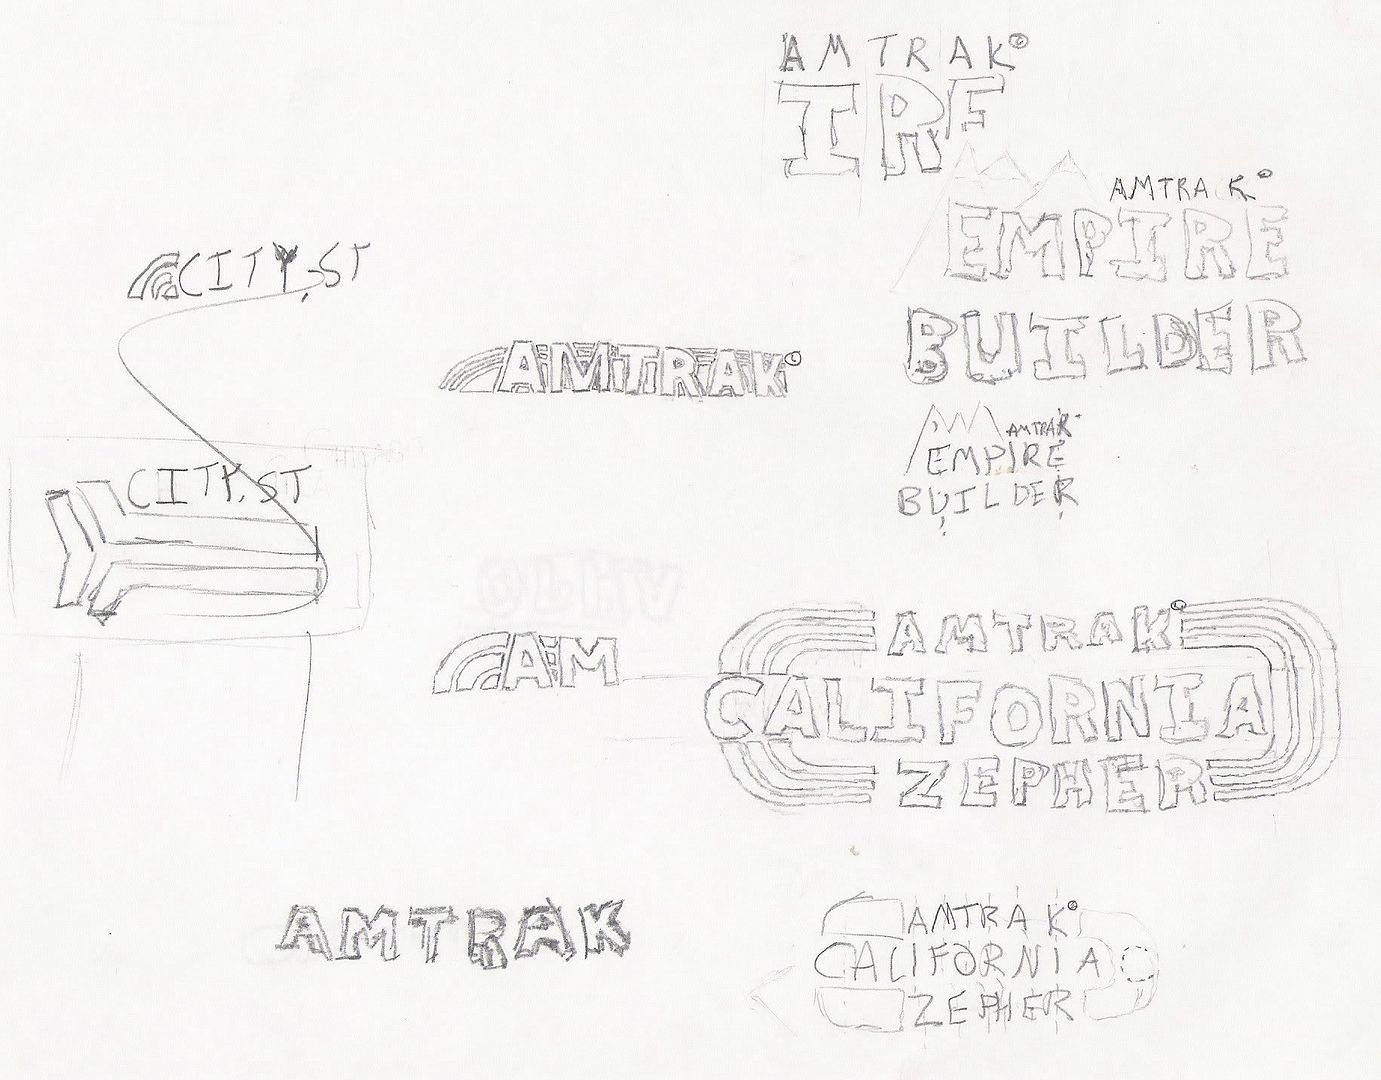 AMTRAK©
IRE
AMTRAK©
EMPIRE
BUILDER
CITY, ST
AMTRAK©
AMTRAK
EMPIRE
BUILDER
CITY, ST
AM
AMTRAK©
CALIFORNIA
ZEPHER
AMTRAK
AMTRAK©
CALIFORNIA
ZEPHER